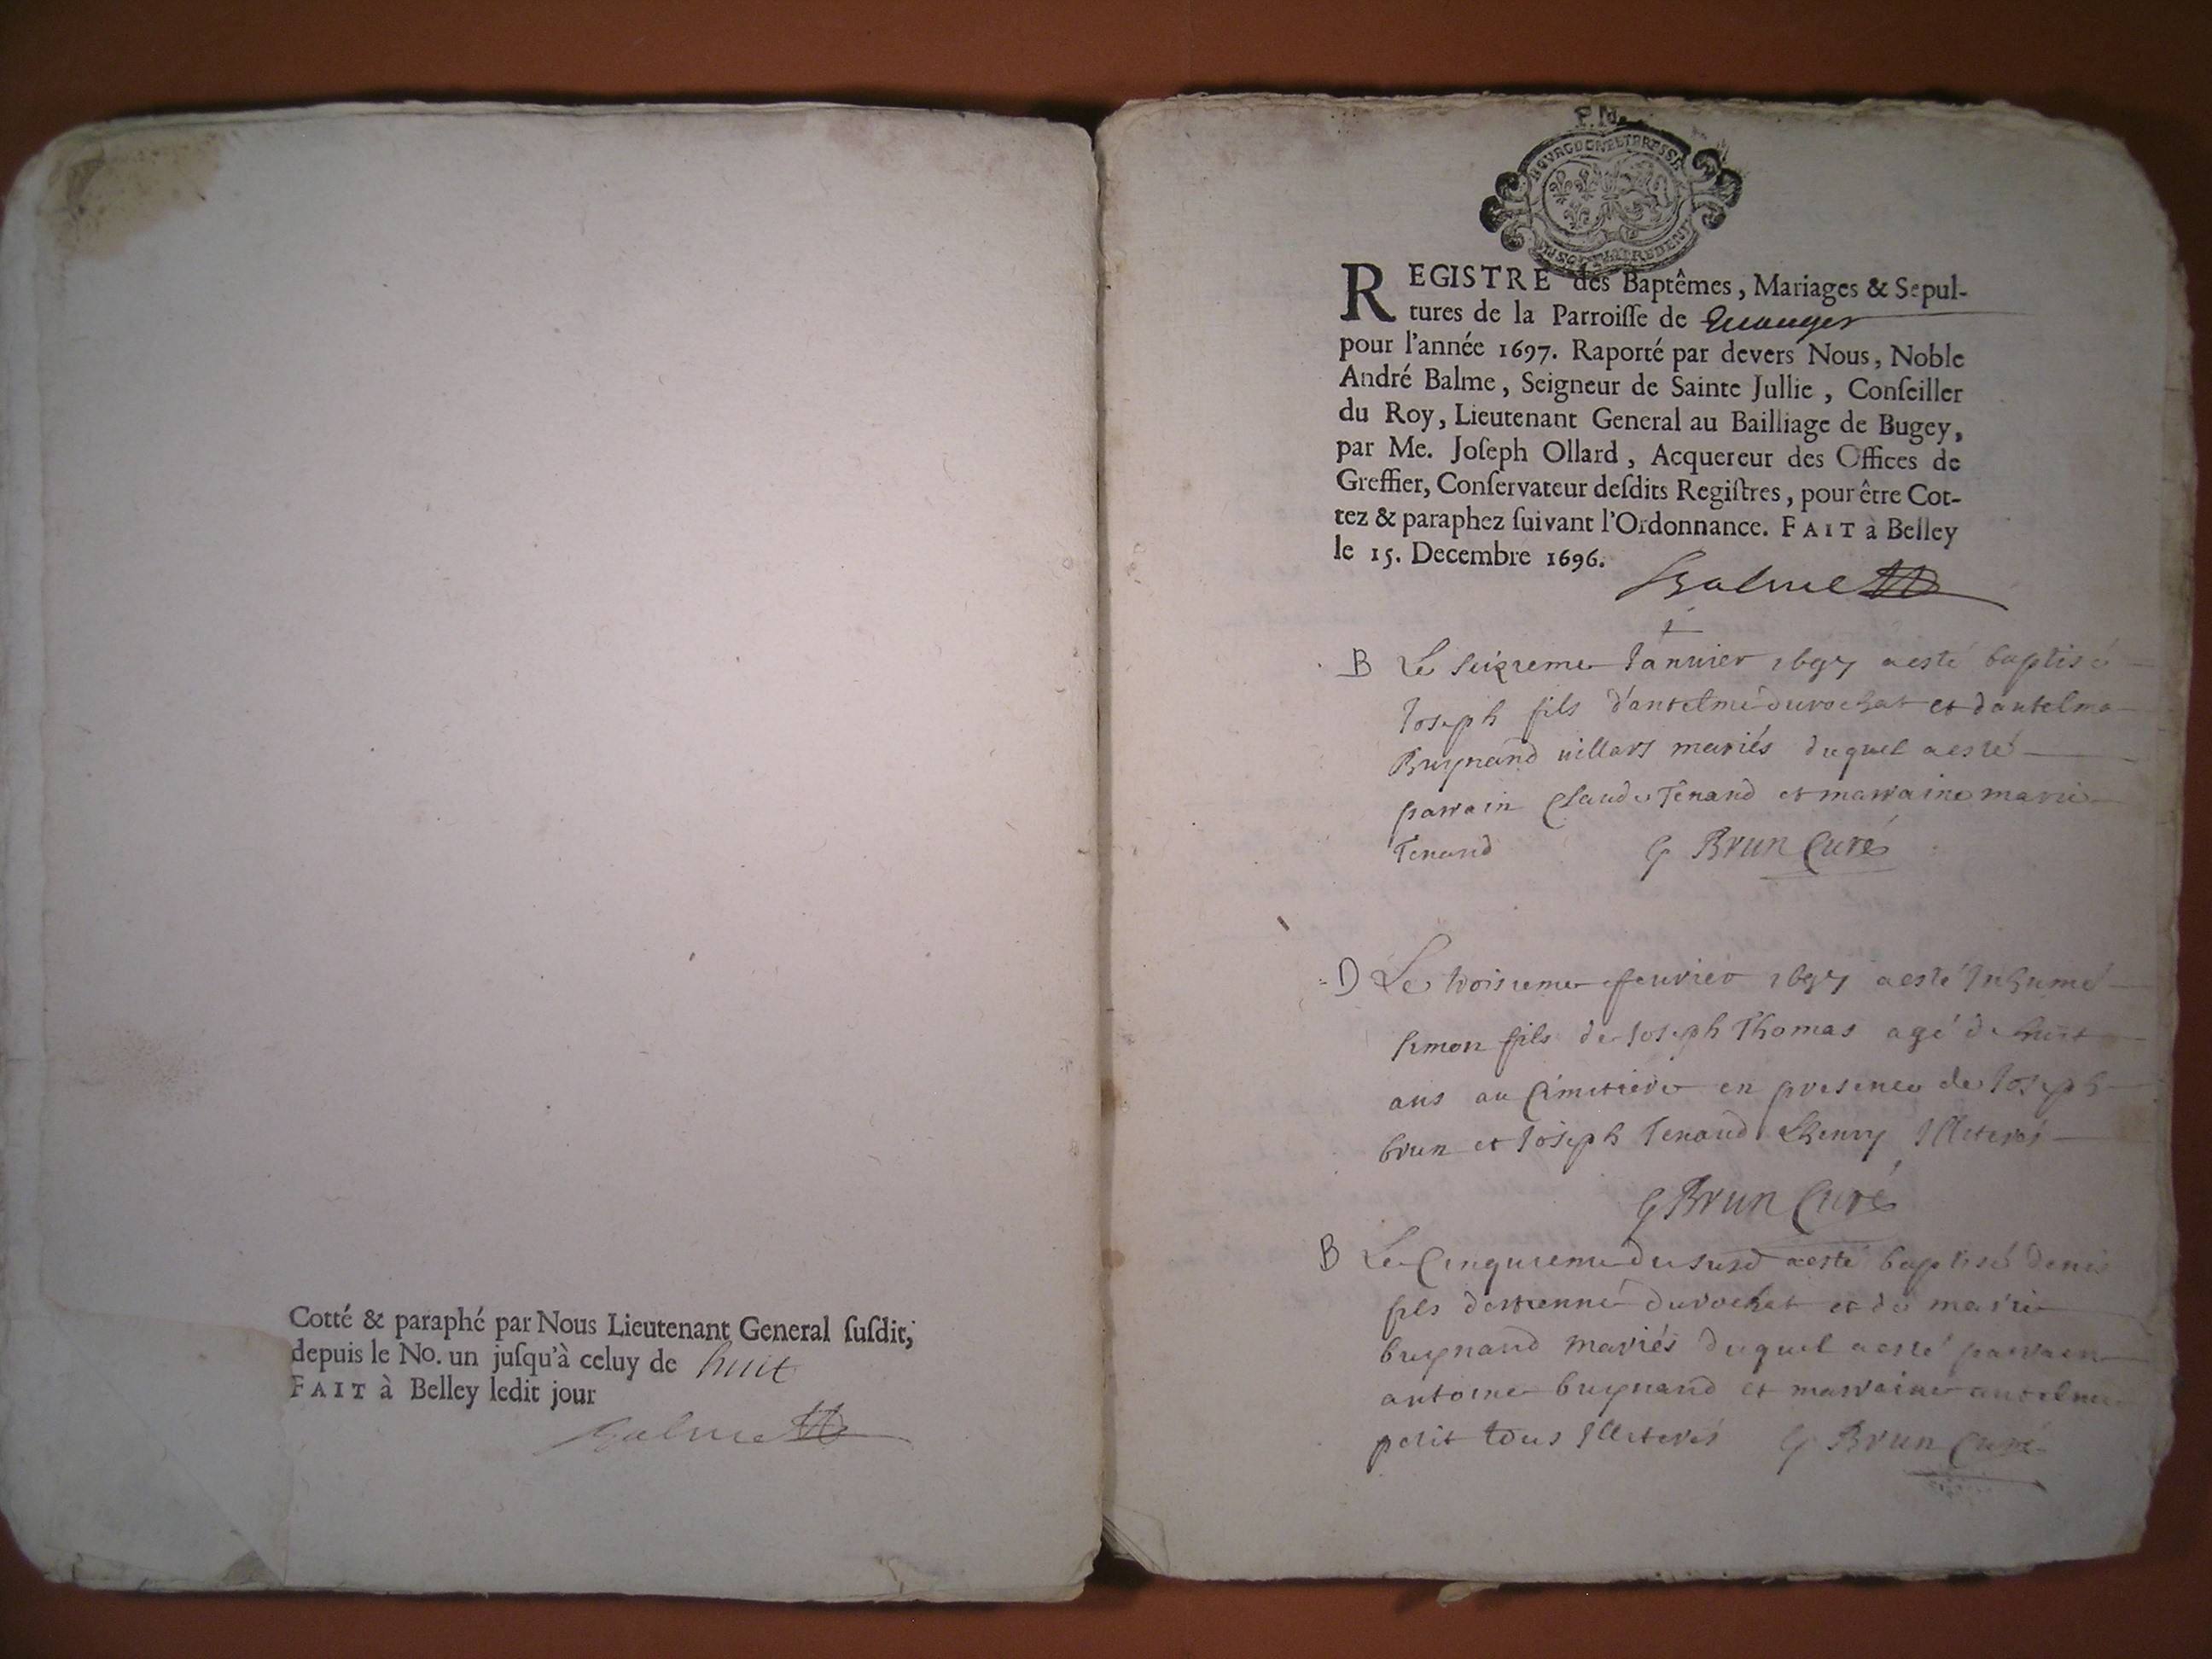 Cotté & paraphé par Nous Lieutenant General ſuſdit,
depuis le No. un juſqu'à celuy de huit
FAIT à Belley ledit jour
Balme
F.N.
BOVRGOGNE ET BRESSE
REGISTRE des Baptêmes, Mariages & Sepul-
tures de la Parroiſſe de
pour l'année 1697. Raporté par devers Nous, Noble
André Balme, Seigneur de Sainte Jullie, Conſeiller
du Roy, Lieutenant General au Bailliage de Bugey,
par Me. Joſeph Ollard, Acquereur des Offices de
Greffier, Conſervateur deſdits Regiſtres, pour être Cot-
tez & paraphez ſuivant l'Ordonnance. FAIT à Belley
le 15. Decembre 1696.
Balme
B Le seizieme Janvier 1697 a esté baptisé
Joseph fils d'antelme durochat et dantelma
Bruynand villars mariés duquel a esté
parrain Claude Tenand et marraine marie
Tenand G Brun Curé
D Le troisieme fevrier 1697 a esté Inhumé
simon fils de Joseph Thomas agé de huit
ans au Cimitiere en presence de Joseph
brun et Joseph Tenand Lhenry Illiterés
G Brun Curé
B Le Cinquieme du susd a esté baptisé denis
fils destienne durochat et de marie
bruynand mariés duquel a esté parrain
antoine bruynand et marraine antelme
petit tous Illiterés G Brun Curé